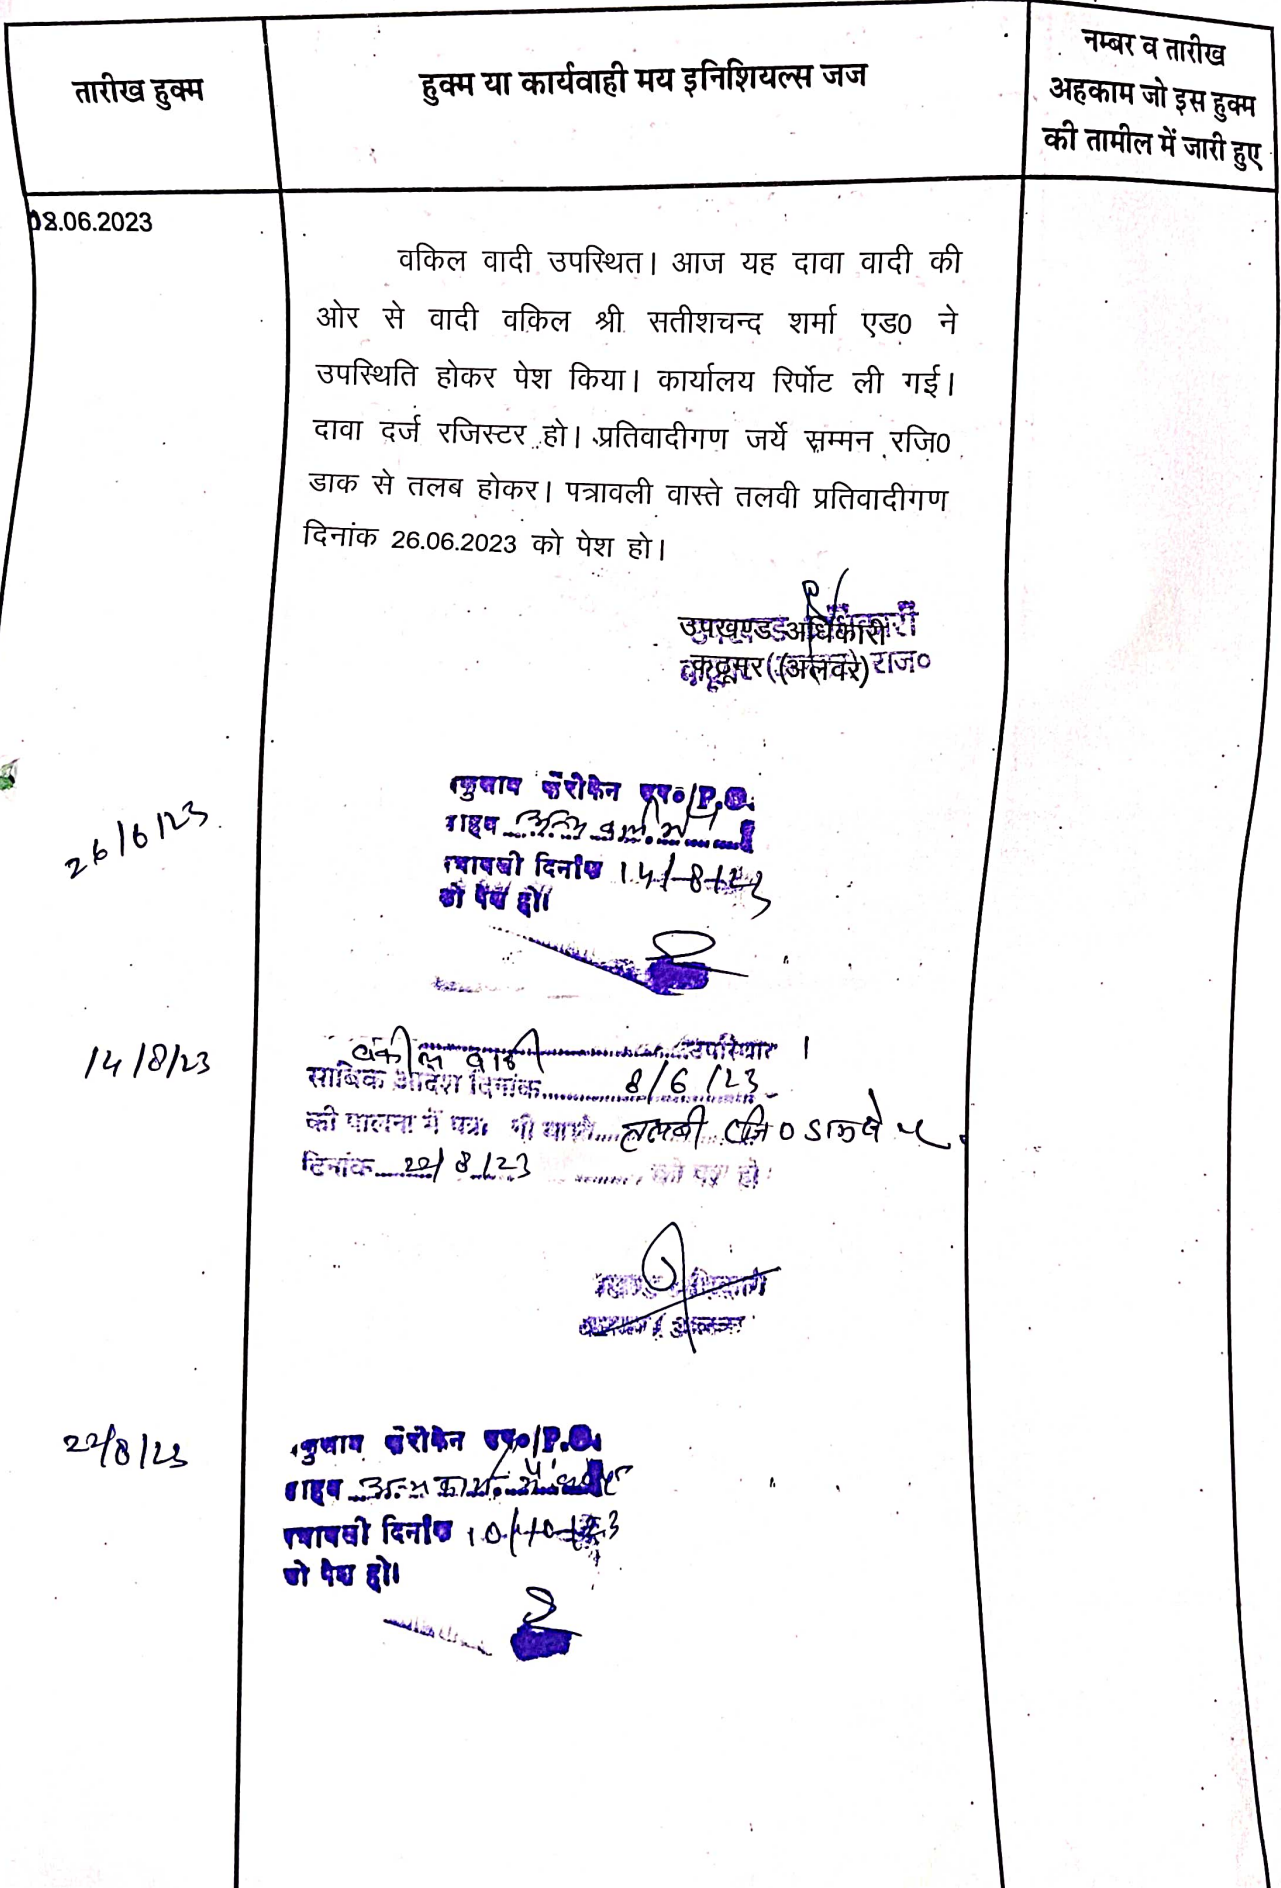 तारीख हुक्म
हुक्म या कार्यवाही मय इनिशियल्स जज
नम्बर व तारीख
अहकाम जो इस हुक्म
की तामील में जारी हुए
08.06.2023
वकिल वादी उपस्थित। आज यह दावा वादी की
ओर से वादी वकिल श्री सतीशचन्द शर्मा एड0 ने
उपस्थिति होकर पेश किया। कार्यालय रिर्पोट ली गई।
दावा दर्ज रजिस्टर हो। प्रतिवादीगण जर्ये सम्मन रजि0
डाक से तलब होकर। पत्रावली वास्ते तलवी प्रतिवादीगण
दिनांक 26.06.2023 को पेश हो।
उपखण्ड अधिकारी
कठूमर (अलवर) राज०
26/6/23
P.O.
दिनांक 14/8/23
को पेश हो।
14/8/23
वकील वादी
साबिक आदेश दिनांक 8/6/23
की पालना में
दिनांक 22/8/23
22/8/23
P.O.
दिनांक 10/10/23
को पेश हो।